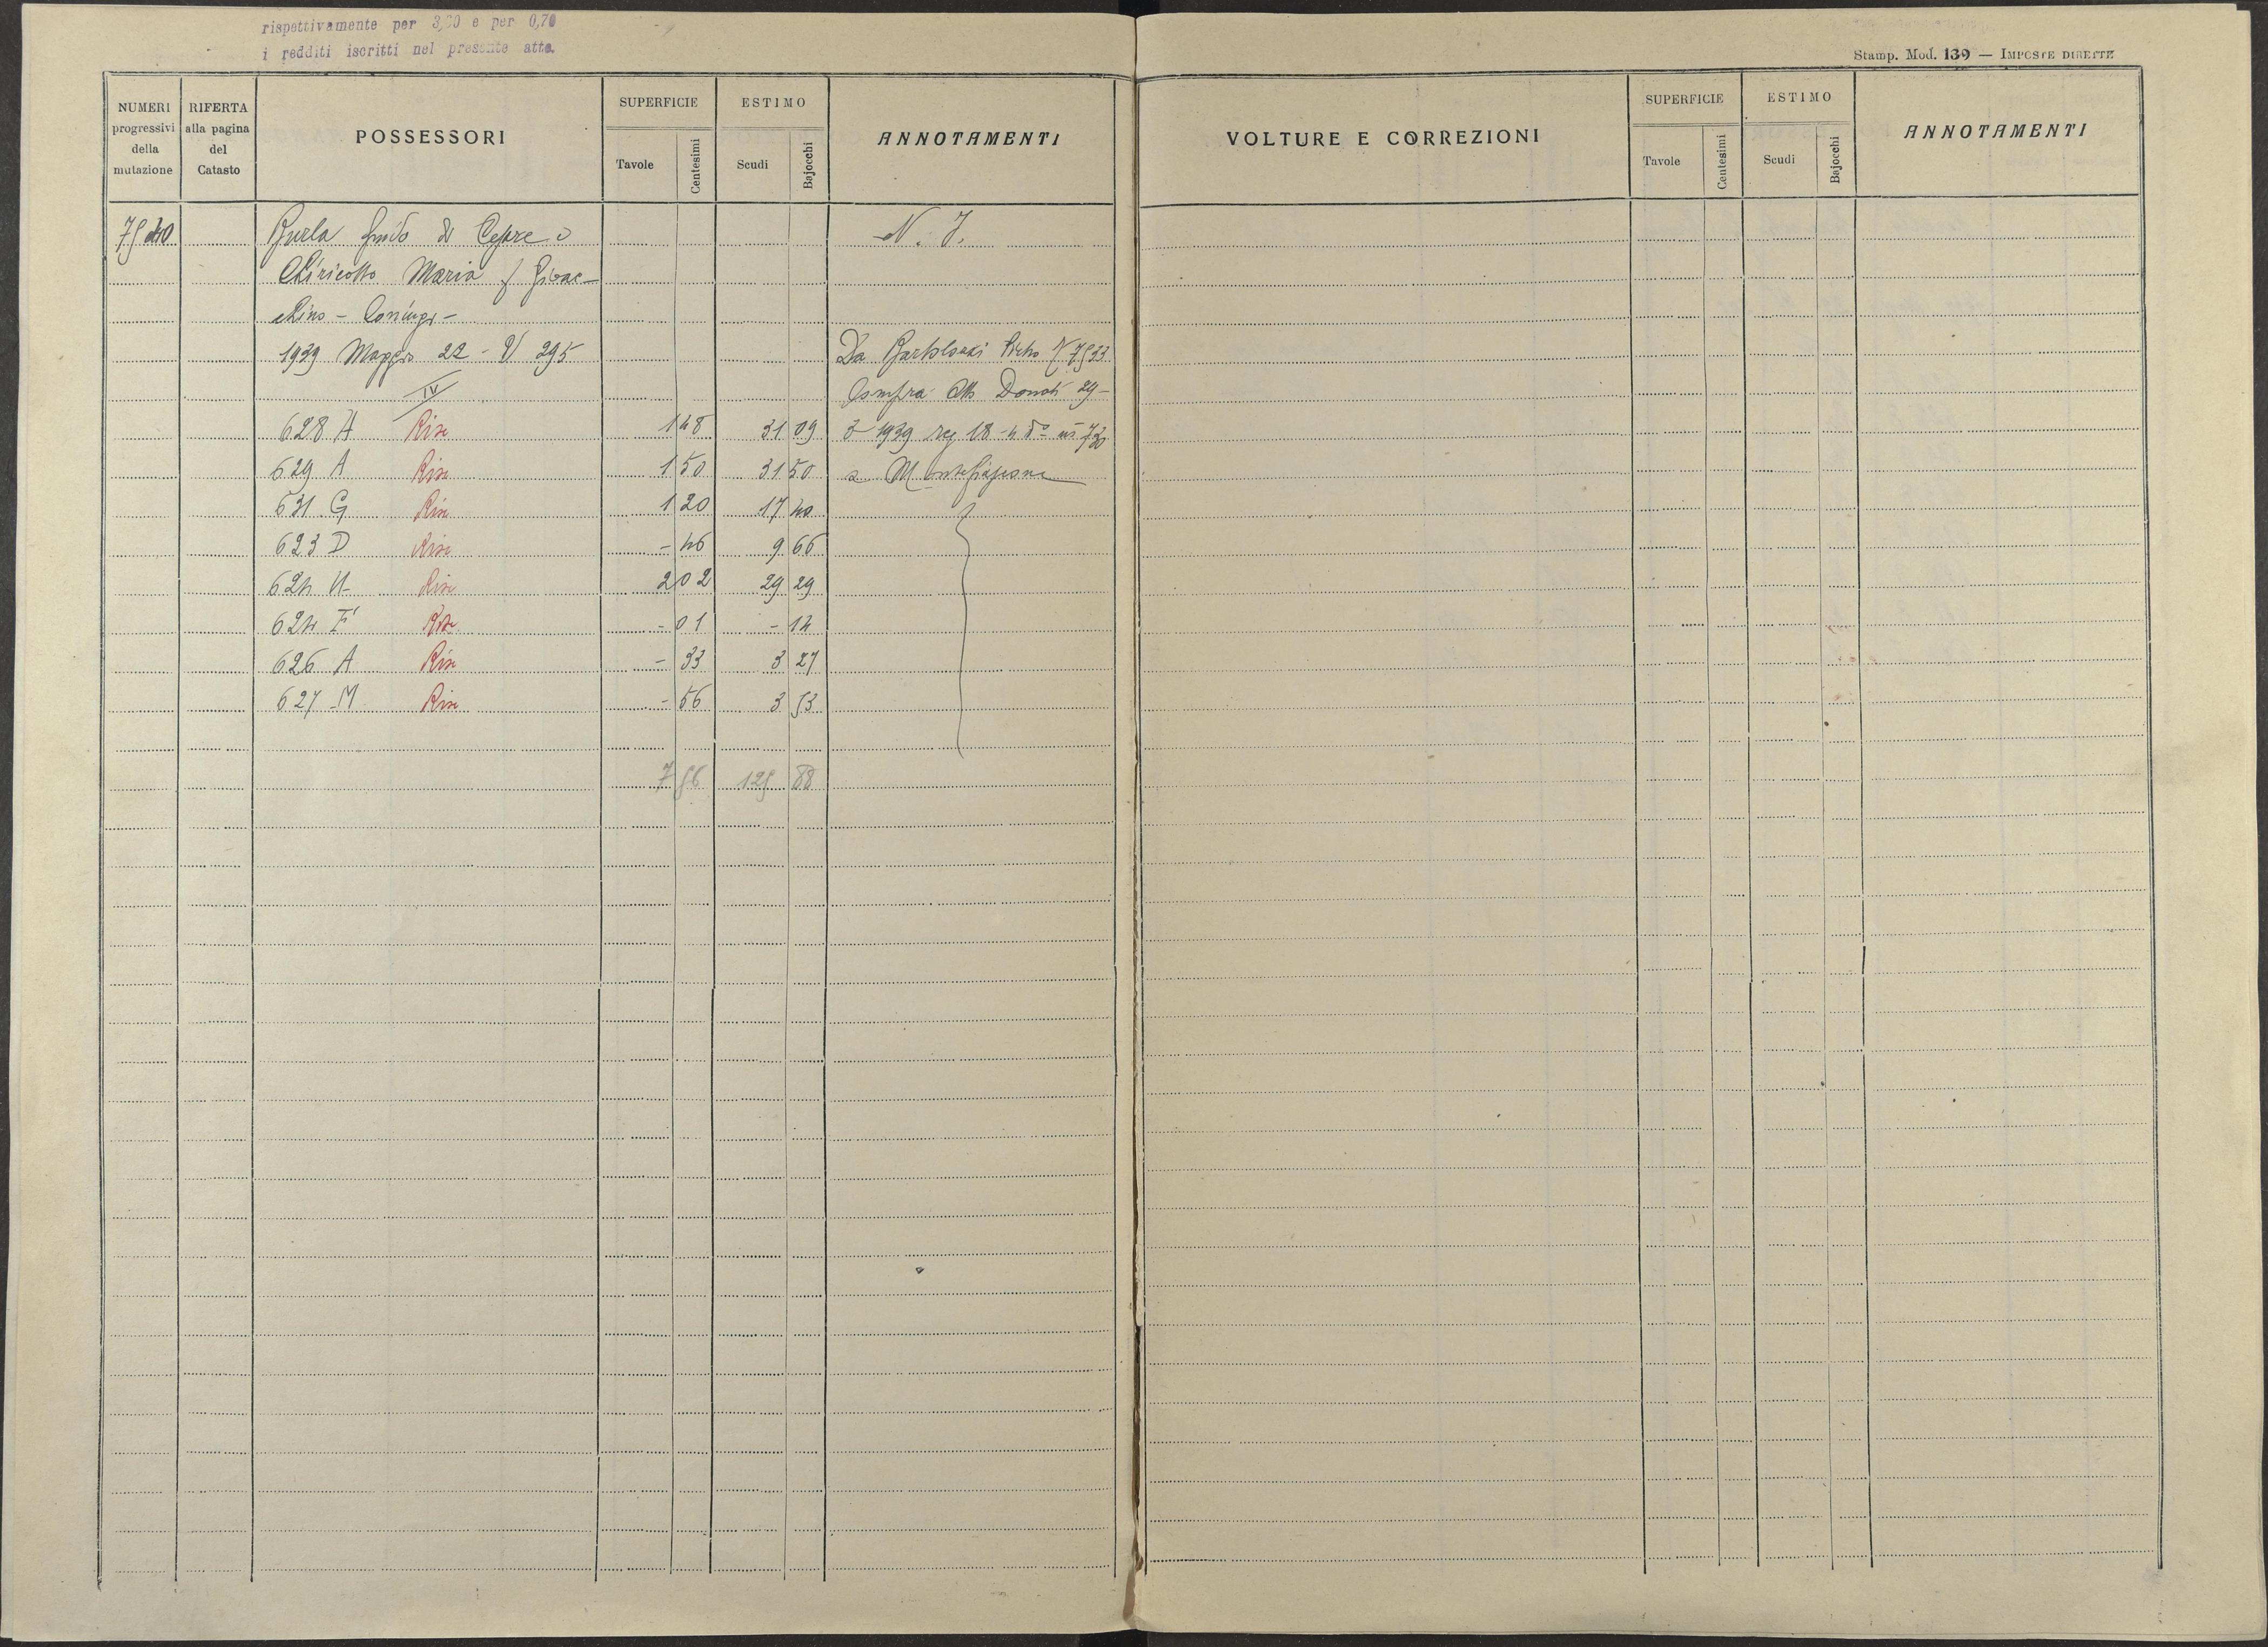 rispettivamente per 3,20 e per 0,70
i redditi iscritti nel presente atto.
Stamp. Mod. 139 — IMPOSTE DIRETTE
NUMERI progressivi della mutazione
RIFERTA alla pagina del Catasto
POSSESSORI
SUPERFICIE
Tavole
Centesimi
ESTIMO
Scudi
Bajocchi
ANNOTAMENTI
VOLTURE E CORREZIONI
SUPERFICIE
Tavole
Centesimi
ESTIMO
Scudi
Bajocchi
ANNOTAMENTI
7540 Burla Guido di Cesare e N. I.
Chiricotto Maria f Gioac-
chino - Coniugi -
1939 Maggio 22 - V 295 Da Bartolozzi Pietro
IV Compra Atto Donati 29-
628 A Rise 1 48 31 09 3 1939 reg 18-4 do
629 A Rise 1 50 31 50 a Montefiascone
631 G Rise 1 20 17 40
623 D Rise - 46 9 66
624 U Rise 2 02 29 29
624 F' Rise - 01 - 14
626 A Rise - 33 3 27
627 M Rise - 56 3 53
7 56 125 88